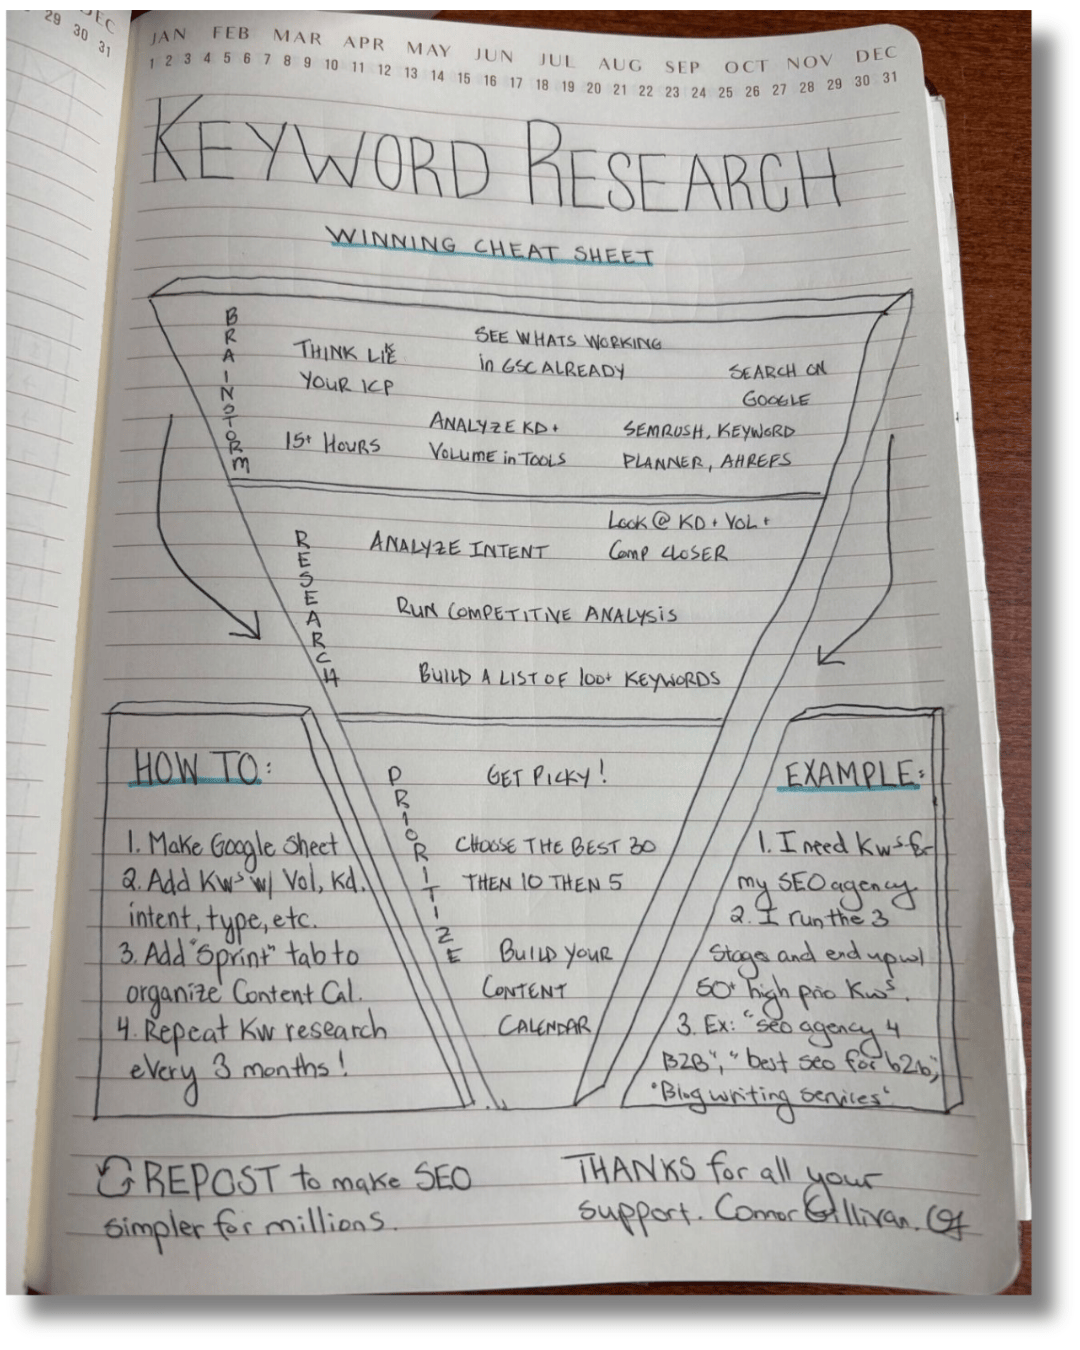 DEC
29 30 31
JAN FEB MAR APR MAY JUN JUL AUG SEP OCT NOV DEC
1 2 3 4 5 6 7 8 9 10 11 12 13 14 15 16 17 18 19 20 21 22 23 24 25 26 27 28 29 30 31
KEYWORD RESEARCH
WINNING CHEAT SHEET
BRAINSTORM
THINK LIKE
YOUR ICP
SEE WHATS WORKING
in GSC ALREADY
SEARCH ON
GOOGLE
15+ HOURS
ANALYZE KD +
VOLUME in TOOLS
SEMRUSH, KEYWORD
PLANNER, AHREFS
RESEARCH
ANALYZE INTENT
LOOK @ KD + VOL +
COMP CLOSER
RUN COMPETITIVE ANALYSIS
BUILD A LIST OF 100+ KEYWORDS
HOW TO:
1. Make Google Sheet
2. Add KWs w/ Vol, Kd.
intent, type, etc.
3. Add "Sprint" tab to
organize Content Cal.
4. Repeat KW research
every 3 months!
PRIORITIZE
GET PICKY!
CHOOSE THE BEST 30
THEN 10 THEN 5
BUILD YOUR
CONTENT
CALENDAR
EXAMPLE:
1. I need KWs for
my SEO agency.
2. I run the 3
Stages and end up w/
50+ high prio KWs.
3. Ex: "seo agency 4
B2B", "best seo for b2b",
"Blog writing services"
REPOST to make SEO
simpler for millions.
THANKS for all your
support. Connor Gillivan. CG